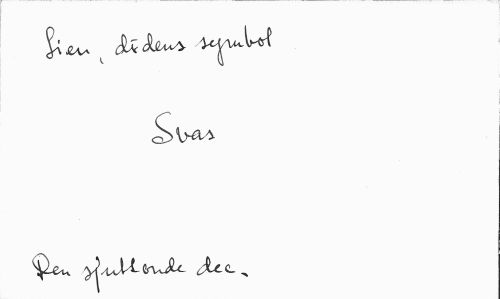 Lien, dödens symbol
Svas
Den sjuttonde dec.